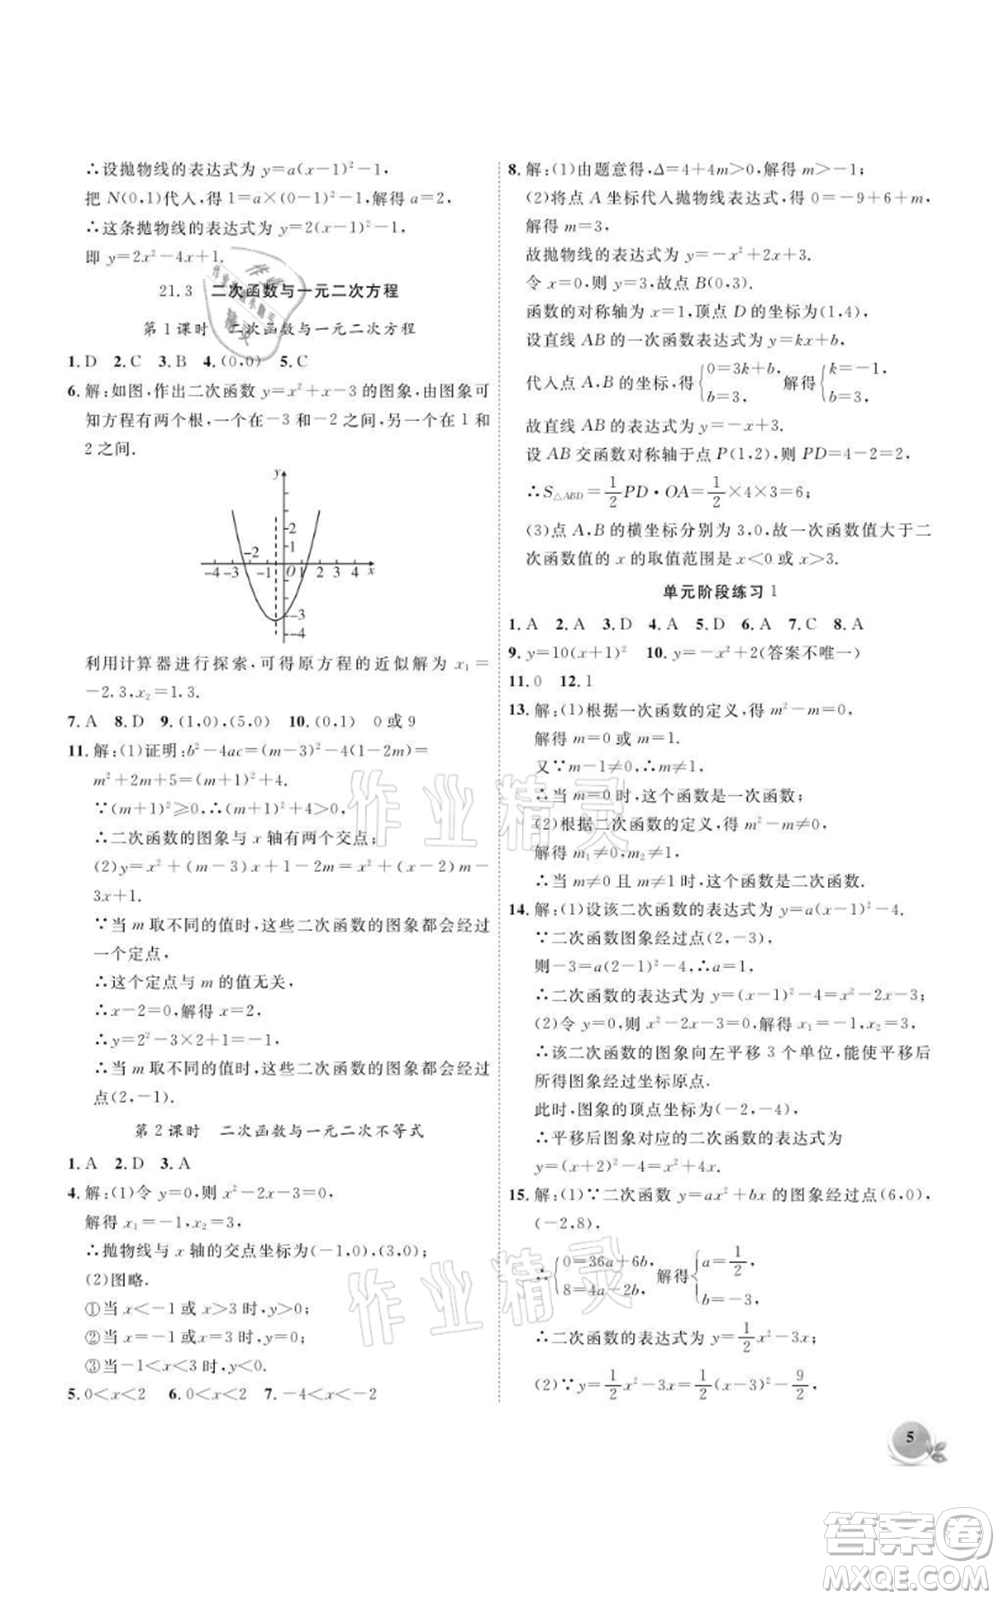 ∴设抛物线的表达式为 y=a(x-1)²-1,
把 N(0,1)代入,得 1=a×(0-1)²-1,解得 a=2,
∴这条抛物线的表达式为 y=2(x-1)²-1,
即 y=2x²-4x+1.
21.3 二次函数与一元二次方程
第 1 课时 二次函数与一元二次方程
1. D 2. C 3. B 4. (0,0) 5. C
6. 解:如图,作出二次函数 y=x²+x-3 的图象,由图象可
知方程有两个根,一个在-3 和-2 之间,另一个在 1 和
2 之间.
y
2
1
-2
-4 -3 -1 O 1 2 3 4 x
-3
-4
利用计算器进行探索,可得原方程的近似解为 x₁=
-2.3,x₂=1.3.
7. A 8. D 9. (1,0),(5,0) 10. (0,1) 0 或 9
11. 解:(1)证明:b²-4ac=(m-3)²-4(1-2m)=
m²+2m+5=(m+1)²+4.
∵(m+1)²≥0,∴(m+1)²+4>0,
∴二次函数的图象与 x 轴有两个交点;
(2)y=x²+(m-3)x+1-2m=x²+(x-2)m-
3x+1.
∵当 m 取不同的值时,这些二次函数的图象都会经过
一个定点,
∴这个定点与 m 的值无关,
∴x-2=0,解得 x=2,
∴y=2²-3×2+1=-1,
∴当 m 取不同的值时,这些二次函数的图象都会经过
点(2,-1).
第 2 课时 二次函数与一元二次不等式
1. A 2. D 3. A
4. 解:(1)令 y=0,则 x²-2x-3=0,
解得 x₁=-1,x₂=3,
∴抛物线与 x 轴的交点坐标为(-1,0),(3,0);
(2)图略.
①当 x<-1 或 x>3 时,y>0;
②当 x=-1 或 x=3 时,y=0;
③当-1<x<3 时,y<0.
5. 0<x<2 6. 0<x<2 7. -4<x<-2
8. 解:(1)由题意得,Δ=4+4m>0,解得 m>-1;
(2)将点 A 坐标代入抛物线表达式,得 0=-9+6+m,
解得 m=3,
故抛物线的表达式为 y=-x²+2x+3.
令 x=0,则 y=3,故点 B(0,3).
函数的对称轴为 x=1,顶点 D 的坐标为(1,4),
设直线 AB 的一次函数表达式为 y=kx+b,
代入点 A,B 的坐标,得{0=3k+b, b=3, 解得{k=-1, b=3.
故直线 AB 的表达式为 y=-x+3.
设 AB 交函数对称轴于点 P(1,2),则 PD=4-2=2,
∴S△ABD=1/2PD·OA=1/2×4×3=6;
(3)点 A,B 的横坐标分别为 3,0,故一次函数值大于二
次函数值的 x 的取值范围是 x<0 或 x>3.
单元阶段练习 1
1. A 2. A 3. D 4. A 5. D 6. A 7. C 8. A
9. y=10(x+1)² 10. y=-x²+2(答案不唯一)
11. 0 12. 1
13. 解:(1)根据一次函数的定义,得 m²-m=0,
解得 m=0 或 m=1.
又∵m-1≠0,∴m≠1,
∴当 m=0 时,这个函数是一次函数;
(2)根据二次函数的定义,得 m²-m≠0,
解得 m₁≠0,m₂≠1,
∴当 m≠0 且 m≠1 时,这个函数是二次函数.
14. 解:(1)设该二次函数的表达式为 y=a(x-1)²-4.
∵二次函数图象经过点(2,-3),
则-3=a(2-1)²-4,∴a=1,
∴二次函数的表达式为 y=(x-1)²-4=x²-2x-3;
(2)令 y=0,则 x²-2x-3=0,解得 x₁=-1,x₂=3,
∴该二次函数的图象向左平移 3 个单位,能使平移后
所得图象经过坐标原点.
此时,图象的顶点坐标为(-2,-4),
∴平移后图象对应的二次函数的表达式为
y=(x+2)²-4=x²+4x.
15. 解:(1)∵二次函数 y=ax²+bx 的图象经过点(6,0),
(-2,8),
∴{0=36a+6b, 8=4a-2b, 解得{a=1/2, b=-3,
∴二次函数的表达式为 y=1/2x²-3x;
(2)∵y=1/2x²-3x=1/2(x-3)²-9/2,
5
作业精灵
作业精灵
答案圈
MXQE.COM